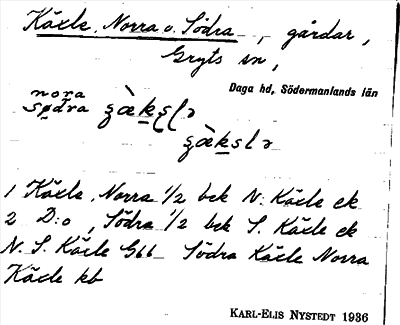 Käxle, Norra o. Södra, gårdar,
Gryts sn,
Daga hd, Södermanlands län
nora
sødra
1 Käxle, Norra 1/2 bek N: Käxle ek
2 D:o, Södra 1/2 bek S. Käxle ek
N. S. Käxle G66 Södra Käxle Norra
Käxle kb
KARL-ELIS NYSTEDT 1936